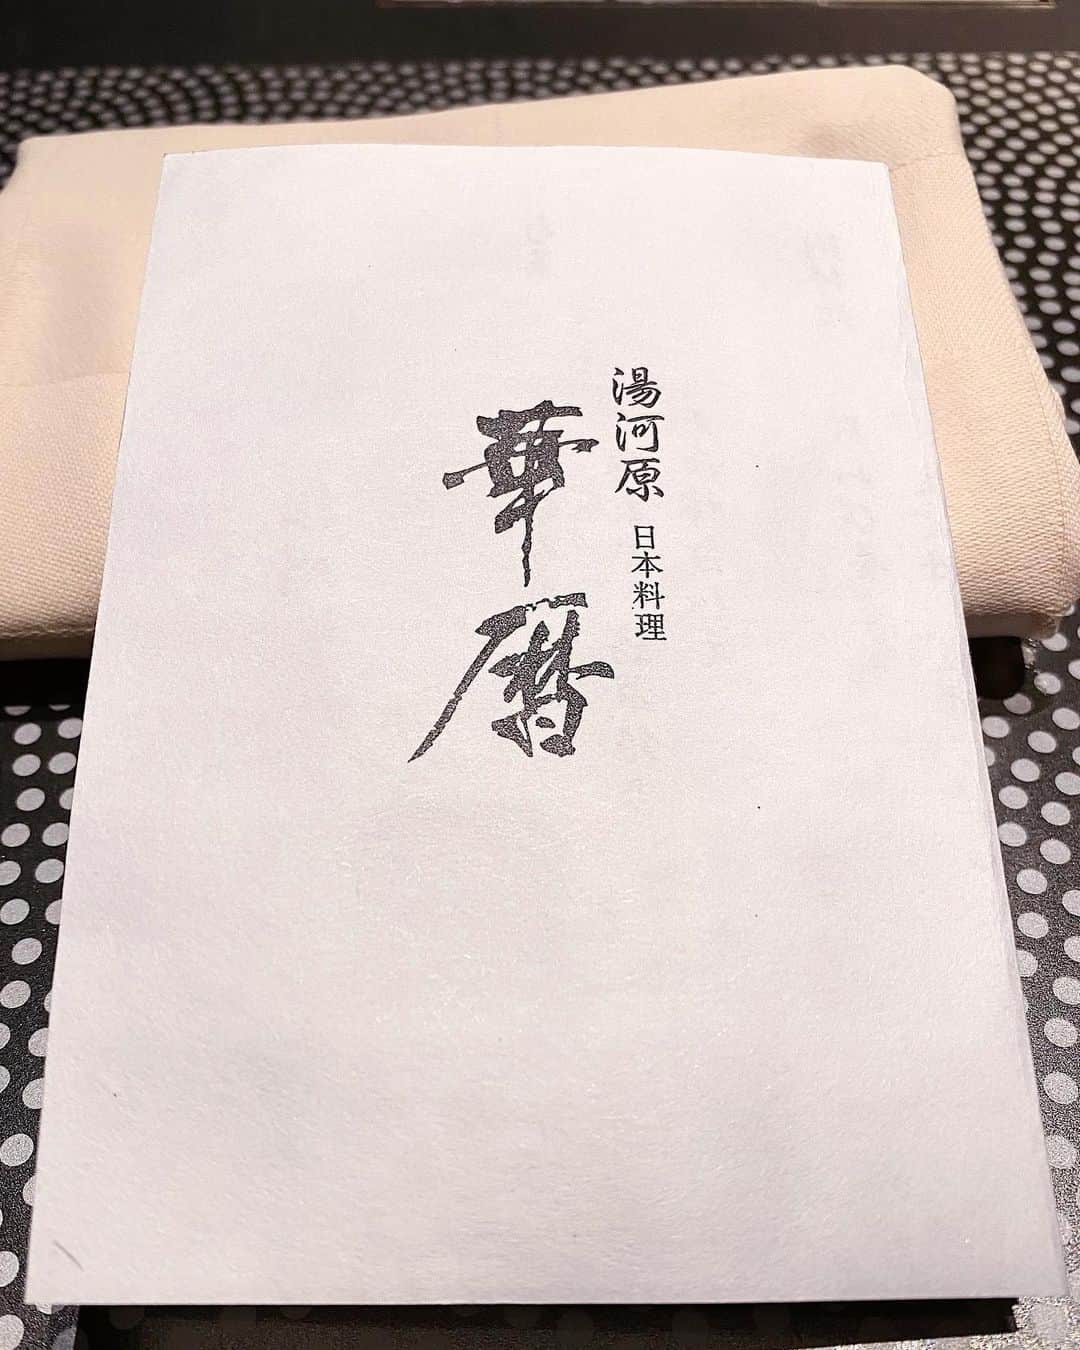 湯河原 日本料理
華暦